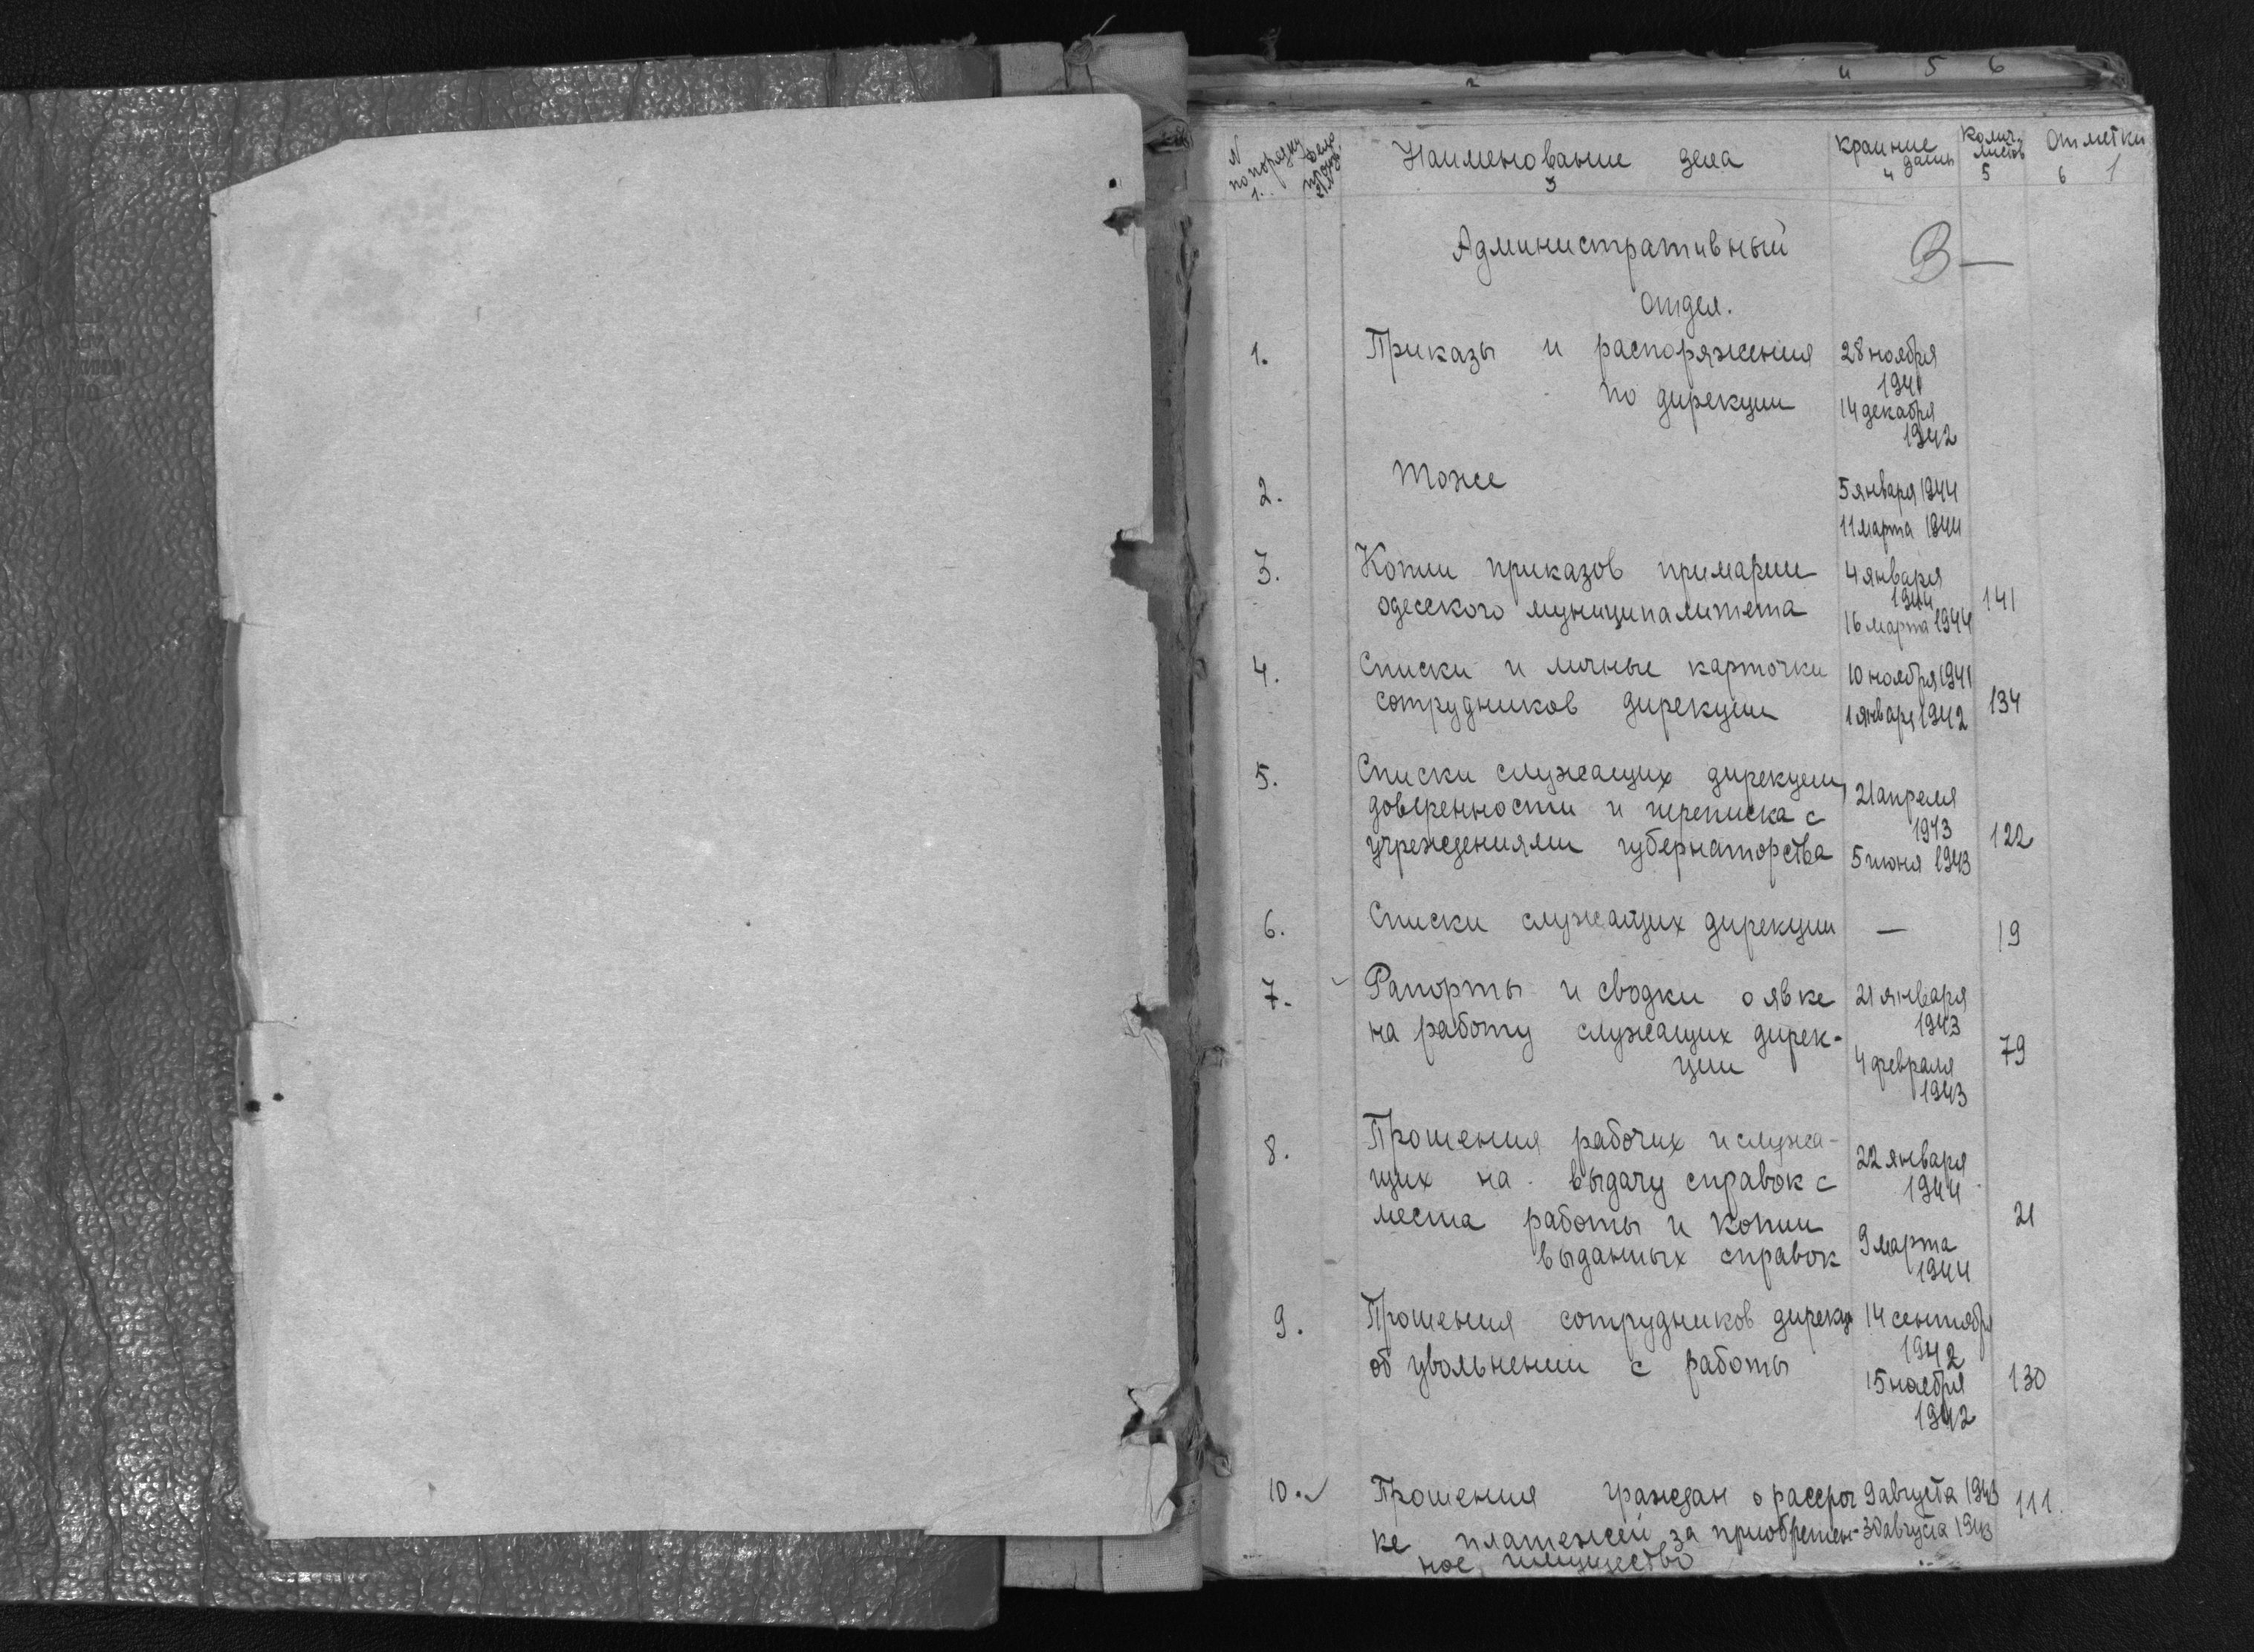 4 5 6
N по порядку 1.
Наименование дела 3
Крайние даты 4
Колич. листов 5
Отметки 6
1
Административный
отдел.
1. Приказы и распоряжения 28 ноября
1941
по дирекции 14 декабря
1942
2. Тоже 5 января 1944
11 марта 1944
3. Копии приказов примарии 4 января
1944 141
одесского муниципалитета 16 марта 1944
4. Списки и личные карточки 10 ноября 1941
сотрудников дирекции 1 январ 1942 134
5. Списки служащих дирекции,
доверенности и переписка с 21 апреля
1943 122
учреждениями губернаторства 5 июня 1943
6. Списки служащих дирекции — 19
7. Рапорты и сводки о явке 21 января
1943
на работу служащих дирек- 79
ции 4 февраля
1943
8. Прошения рабочих и служа-
щих на выдачу справок с 22 января
1944
места работы и копии 21
выданных справок 9 марта
1944
9. Прошения сотрудников дирекц 14 сентября
1942
об увольнении с работы 15 ноября 130
1942
10. Прошения граждан о рассроч 9 августа 1943 111.
ке платежей за приобретен- 30 августа 1943
ное имущество